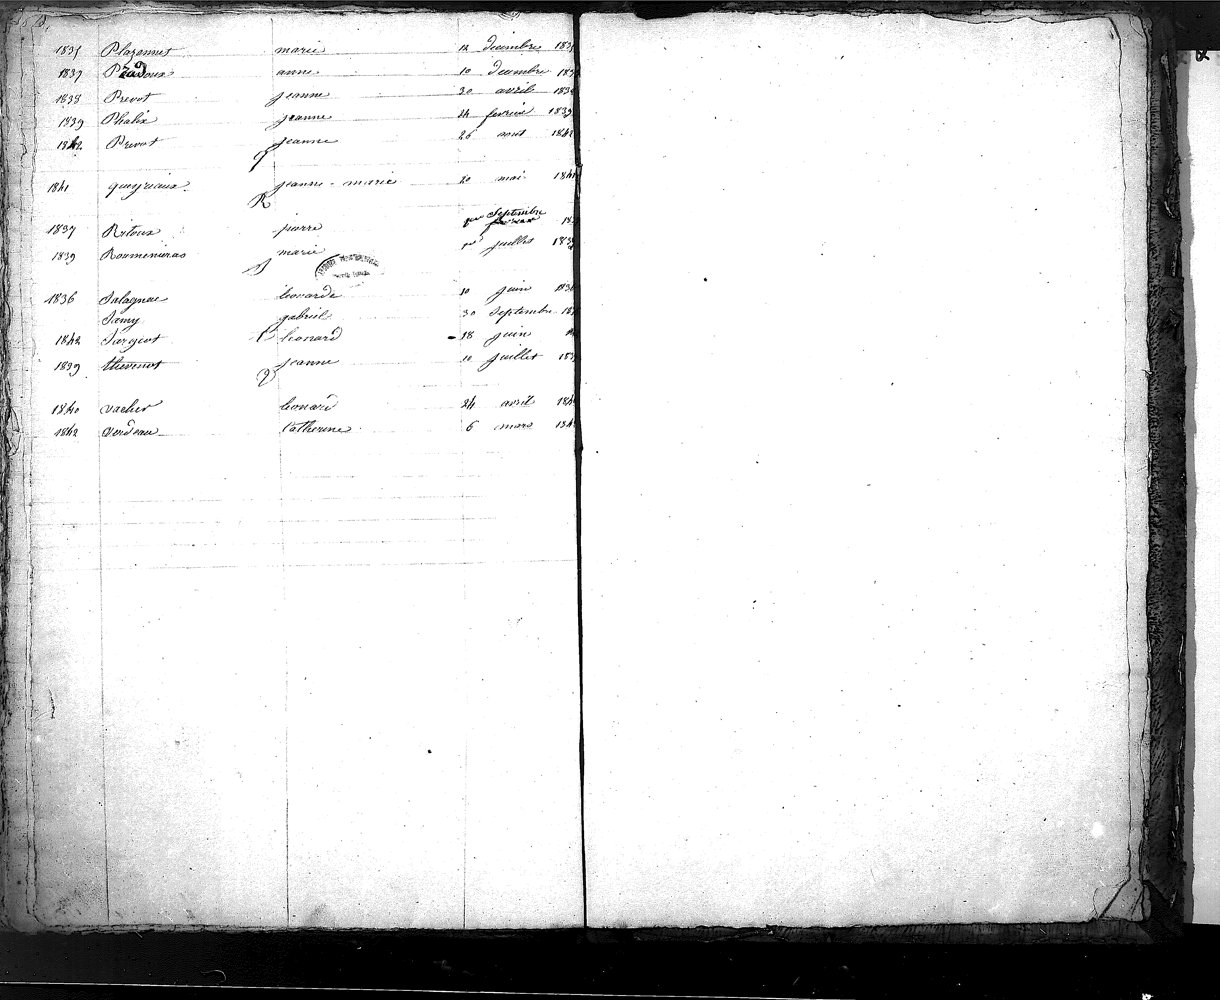 1837 Plazannet marie 12 decembre 183
1837 Pradoux anne 10 decembre 183
1838 Prevot jeanne 30 avril 183
1839 Phalix jeanne 24 fevrier 1839
1842 Prevot jeanne 26 aout 1842
Q
1841 queyriaux jeanne-marie 20 mai 1841
R
1837 Ritoux pierre 1er Septembre 183
1839 Roumenieras marie 1er juillet 1839
S
1836 Salagnac leonarde 10 juin 1836
Samy gabriel 30 Septembre
1842 Sargeot leonard 18 juin
T
1839 thevenot jeanne 11 juillet 183
V
1840 vacher leonard 24 avril 184
1842 verdeau Catherine 6 mars 184